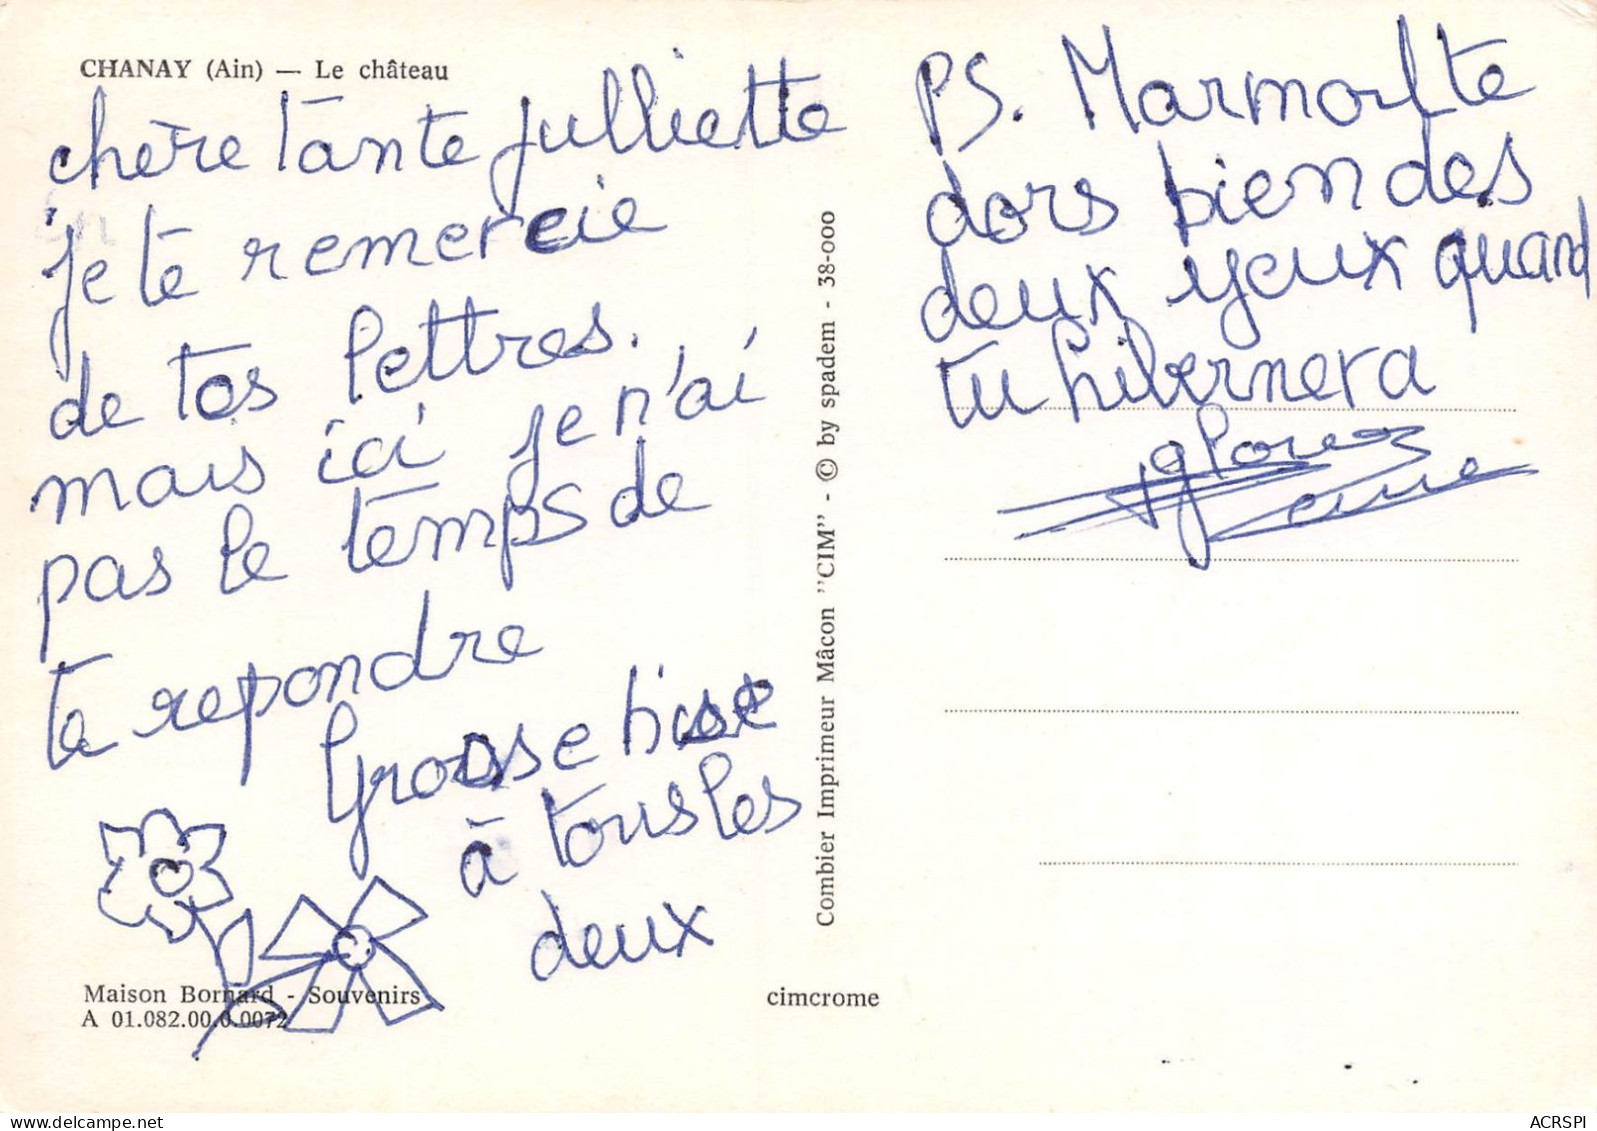 CHANAY (Ain) — Le château
chère Tante julliette
je te remercie
de tes lettres.
mais ici je n'ai
pas le temps de
te repondre
Grosse bise
à tous les
deux
Maison Bornard - Souvenirs
A 01.082.00.0.0072
cimcrome
Combier Imprimeur Mâcon "CIM" - © by spadem - 38-000
PS. Marmotte
dors bien des
deux yeux quand
tu hibernera
ACRSPI